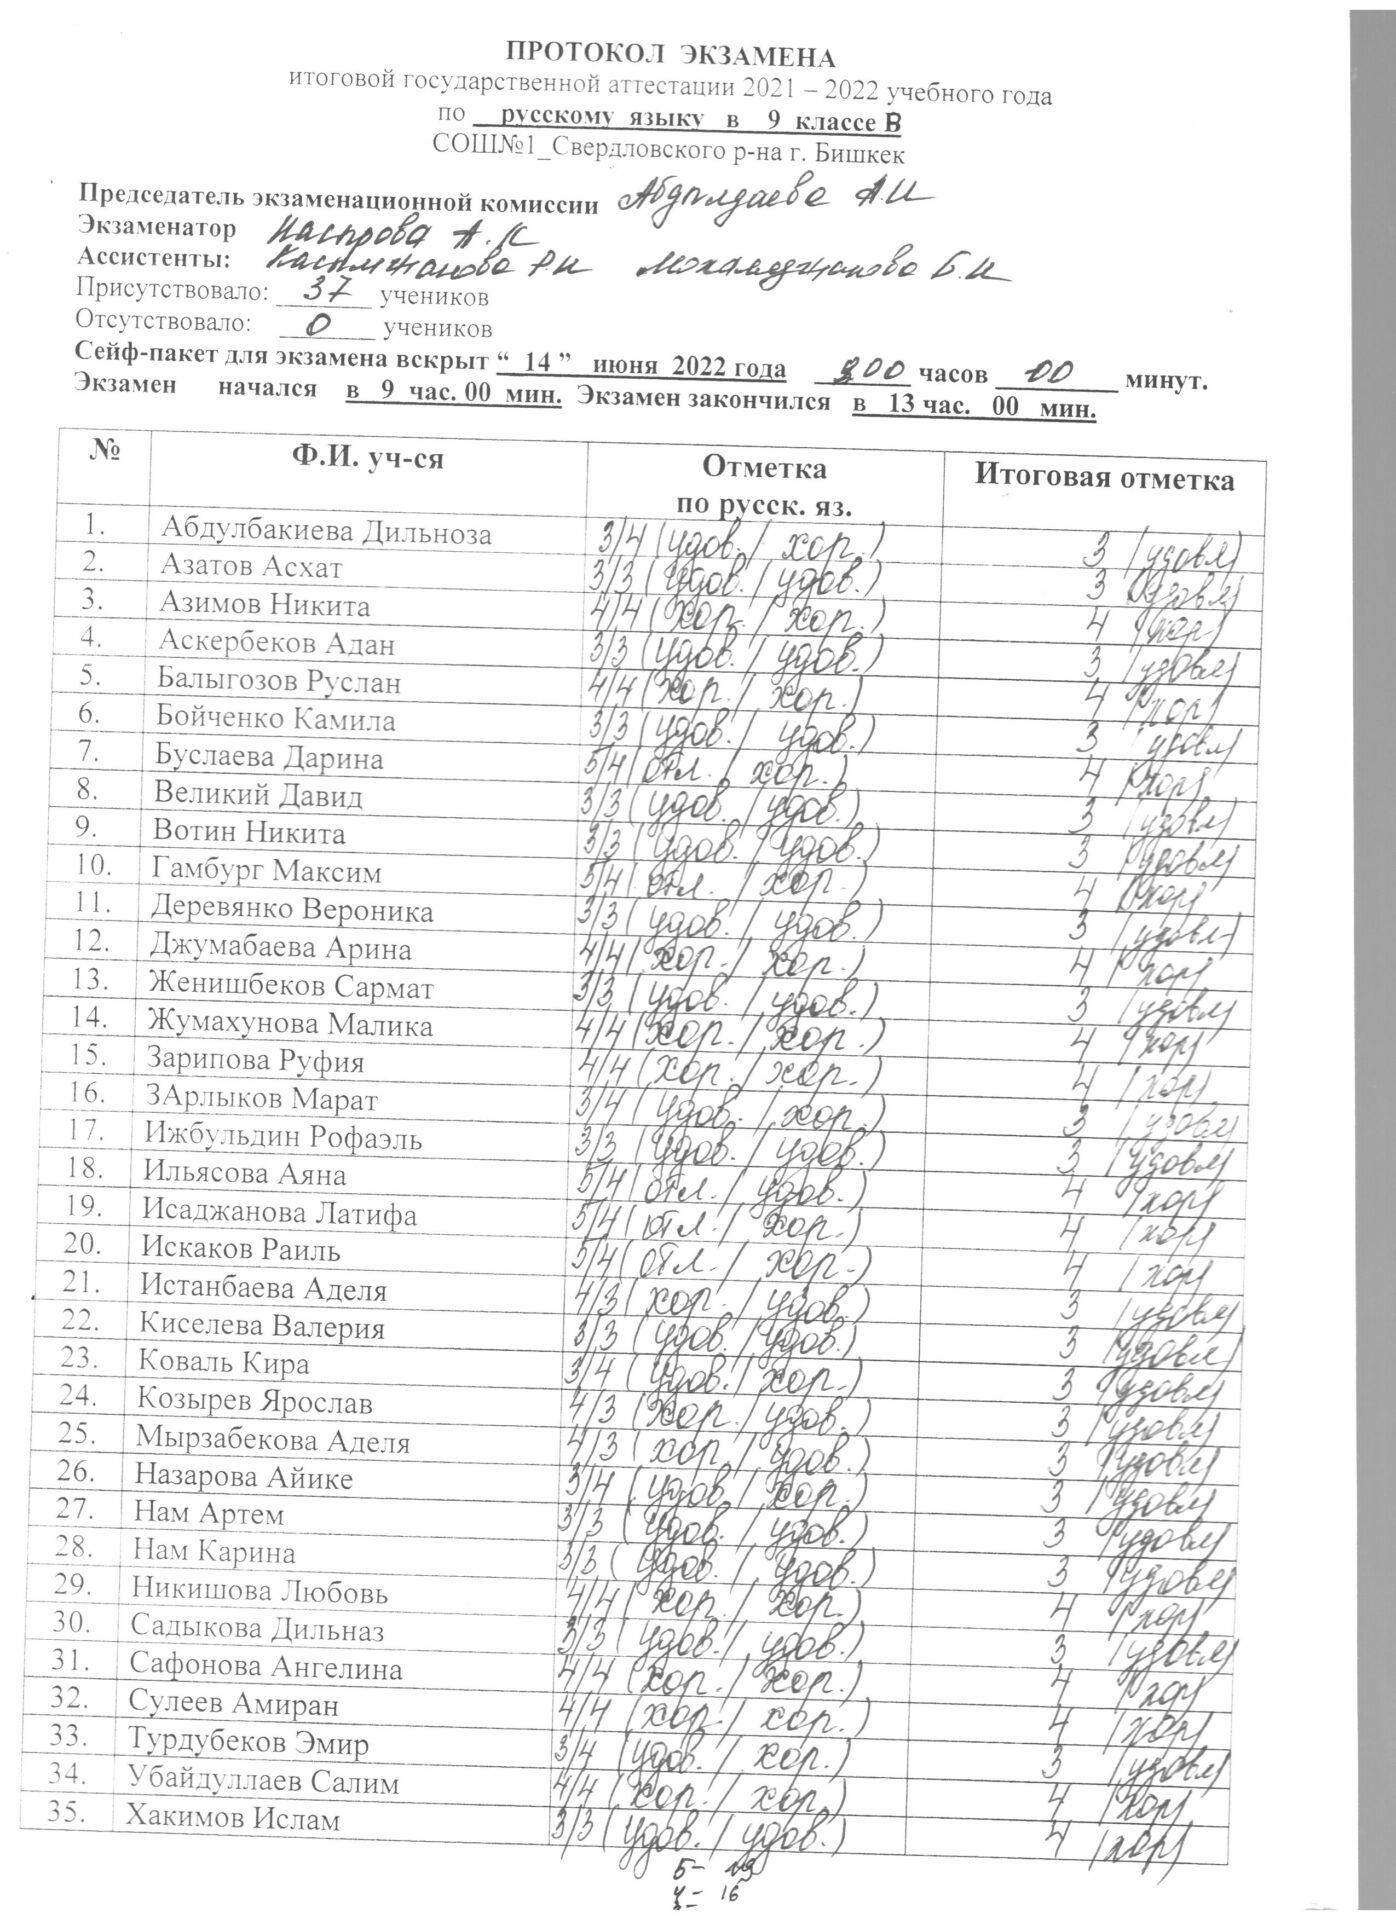 ПРОТОКОЛ ЭКЗАМЕНА
итоговой государственной аттестации 2021 – 2022 учебного года
по русскому языку в 9 классе В
СОШ№1_Свердловского р-на г. Бишкек
Председатель экзаменационной комиссии Абдылдаева А.И
Экзаменатор Насырова А.К
Ассистенты: Касымжанова Р.И Мохамеджанова Б.И
Присутствовало: 37 учеников
Отсутствовало: 0 учеников
Сейф-пакет для экзамена вскрыт “ 14 ” июня 2022 года часов 00 минут.
Экзамен начался в 9 час. 00 мин. Экзамен закончился в 13 час. 00 мин.
№ Ф.И. уч-ся Отметка по русск. яз. Итоговая отметка
1. Абдулбакиева Дильноза 3/4 (удов. / хор.) 3 (удовл)
2. Азатов Асхат 3/3 (удов. / удов.) 3 (удовл)
3. Азимов Никита 4/4 (хор. / хор.) 4 (хор)
4. Аскербеков Адан 3/3 (удов. / удов.) 3 (удовл)
5. Балыгозов Руслан 4/4 (хор. / хор.) 4 (хор)
6. Бойченко Камила 3/3 (удов. / удов.) 3 (удовл)
7. Буслаева Дарина 5/4 (отл. / хор.) 4 (хор)
8. Великий Давид 3/3 (удов. / удов.) 3 (удовл)
9. Вотин Никита 3/3 (удов. / удов.) 3 (удовл)
10. Гамбург Максим 5/4 (отл. / хор.) 4 (хор)
11. Деревянко Вероника 3/3 (удов. / удов.) 3 (удовл)
12. Джумабаева Арина 4/4 (хор. / хор.) 4 (хор)
13. Женишбеков Сармат 3/3 (удов. / удов.) 3 (удовл)
14. Жумахунова Малика 4/4 (хор. / хор.) 4 (хор)
15. Зарипова Руфия 4/4 (хор. / хор.) 4 (хор)
16. ЗАрлыков Марат 3/4 (удов. / хор.) 3 (удовл)
17. Ижбульдин Рофаэль 3/3 (удов. / удов.) 3 (удовл)
18. Ильясова Аяна 5/4 (отл. / удов.) 4 (хор)
19. Исаджанова Латифа 5/4 (отл. / хор.) 4 (хор)
20. Искаков Раиль 5/4 (отл. / хор.) 4 (хор)
21. Истанбаева Аделя 4/3 (хор. / удов.) 3 (удовл)
22. Киселева Валерия 3/3 (удов. / удов.) 3 (удовл)
23. Коваль Кира 3/4 (удов. / хор.) 3 (удовл)
24. Козырев Ярослав 4/3 (хор. / удов.) 3 (удовл)
25. Мырзабекова Аделя 4/3 (хор. / удов.) 3 (удовл)
26. Назарова Айике 3/4 (удов. / хор.) 3 (удовл)
27. Нам Артем 3/3 (удов. / удов.) 3 (удовл)
28. Нам Карина 3/3 (удов. / удов.) 3 (удовл)
29. Никишова Любовь 4/4 (хор. / хор.) 4 (хор)
30. Садыкова Дильназ 3/3 (удов. / удов.) 3 (удовл)
31. Сафонова Ангелина 4/4 (хор. / хор.) 4 (хор)
32. Сулеев Амиран 4/4 (хор. / хор.) 4 (хор)
33. Турдубеков Эмир 3/4 (удов. / хор.) 3 (удовл)
34. Убайдуллаев Салим 4/4 (хор. / хор.) 4 (хор)
35. Хакимов Ислам 3/3 (удов. / удов.) 4 (хор)
16